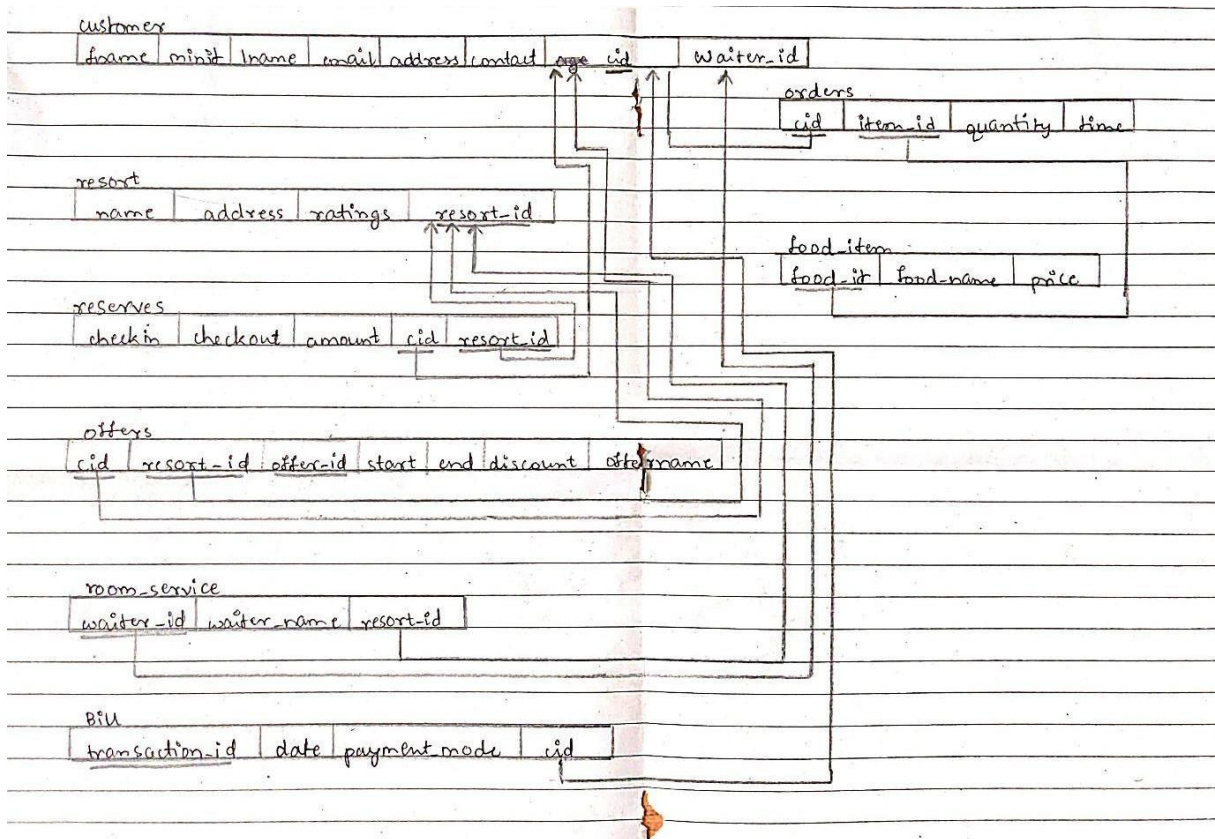 customer
fname minit lname email address contact cid waiter_id
orders
cid item_id quantity time
resort
name address ratings resort_id
food_item
food_it food_name price
reserves
checkin checkout amount cid resort_id
offers
cid resort_id offer_id start end discount offer name
room_service
waiter_id waiter_name resort_id
Bill
transaction_id date payment_mode cid